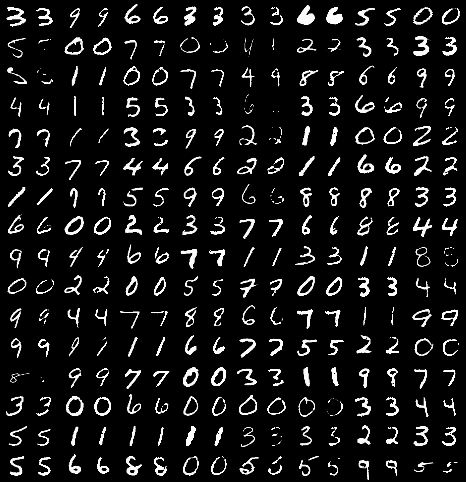 3 3 9 9 6 6 3 3 3 3 6 6 5 5 0 0
5 5 0 0 7 7 0 0 4 1 2 2 3 3 3 3
5 1 1 0 0 7 7 4 9 8 8 6 6 9 9
4 4 1 1 5 5 3 3 6 3 3 6 6 9 9
7 7 1 1 3 3 9 9 2 2 1 1 0 0 2 2
3 3 7 7 4 4 6 6 2 2 1 1 6 6 2 2
1 1 9 9 5 5 9 9 6 6 8 8 8 8 3 3
6 6 0 0 2 2 3 3 7 7 6 6 8 8 4 4
9 9 4 4 6 6 7 7 1 1 3 3 1 1 8 8
0 0 2 2 0 0 5 5 7 7 0 0 3 3 4 4
9 9 4 4 7 7 8 8 6 6 7 7 1 1 9 9
9 9 9 1 1 6 6 7 7 5 5 2 2 0 0
8 9 9 7 7 0 0 3 3 1 1 9 9 7 7
3 3 0 0 6 6 0 0 0 0 0 0 3 3 4 4
5 5 1 1 1 1 1 1 3 3 3 3 2 2 3 3
5 5 6 6 8 8 0 0 5 5 5 5 9 9 5 5